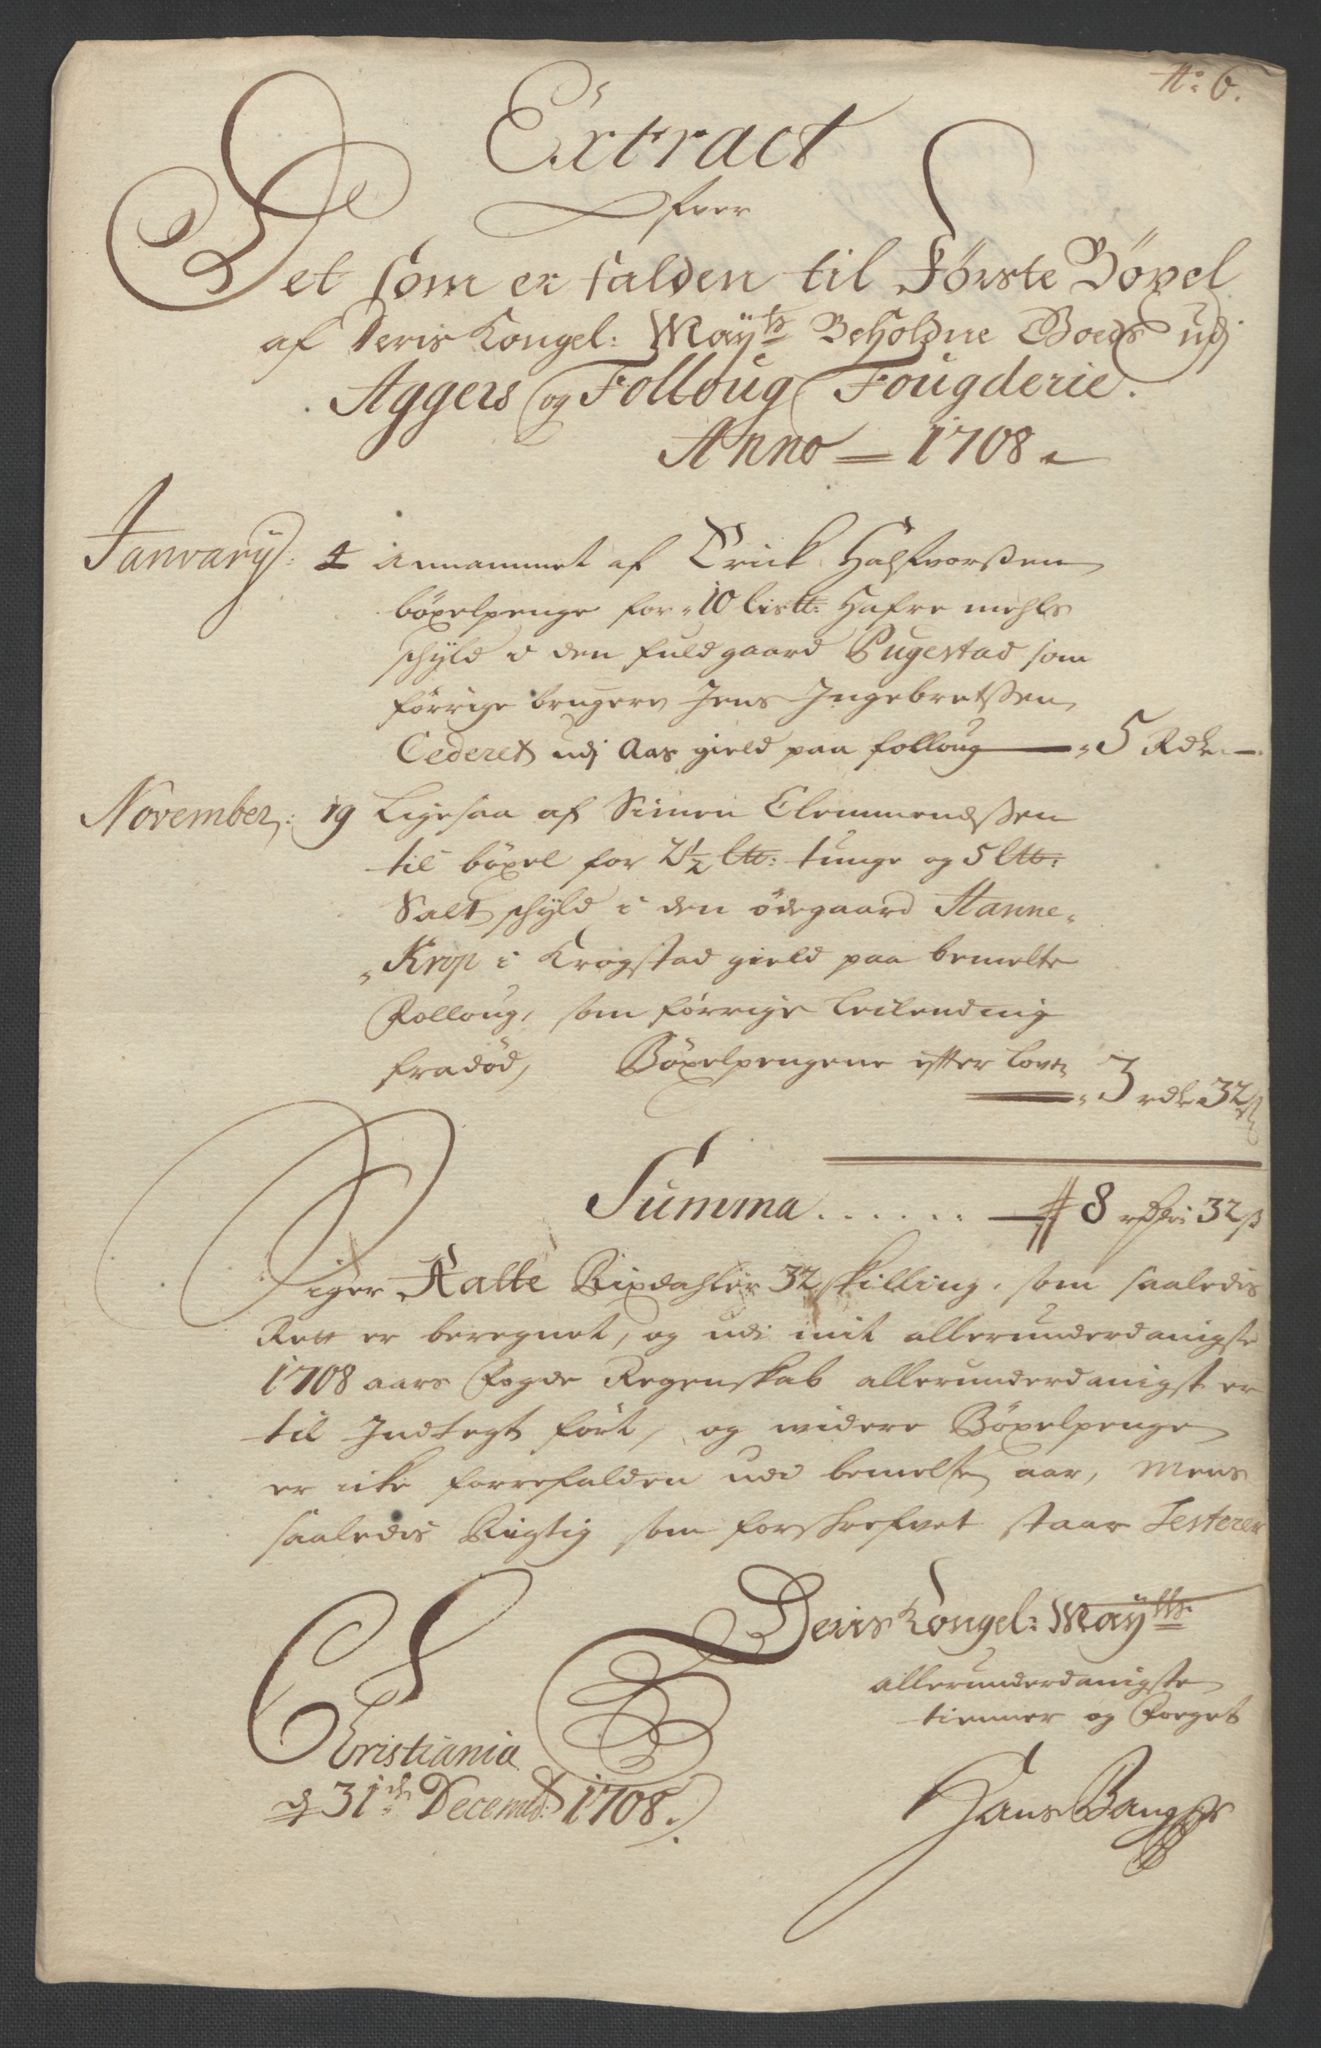 N: 6.
Extract
ofver
Det som er falden til Første Böxel
af Deris Kongel: Mayts Beholdne Goeds udj
Aggers og Folloug Fougderie.
Anno 1708
Janvarij: 4 Annammet af Erick Halfvorßen
böxelpenge for 10 lis℔: Hafre mehls
schyld i den fuldgaard Pugestad som
förrige bruger Jens Ingebretßen
Cederet udj Aas gield paa folloug 5 Rdr
November: 19 Ligesaa af Simen Clemmendßen
til böxel for 2½ l℔: tunge og 5 l℔:
Salt schyld i den ödegaard Hanne-
Krop i Krogstad gield paa bemelte
Folloug, som förrige Leilending
fradöd, Böxelpengene efter Loven
3 rdr 32 ß
Summa ...... 8 rdr: 32 ß
Siger Aatte Rixdahler 32 skilling, som saaledis
Rett er beregnet, og udi mit allerunderdanigste
1708 aars Fogde Regenskab allerunderdanigst er
til Indtegt fört, og widere Böxelpenge
er icke forrefalden udi bemelte aar, Mens
saaledis Rigtig som forskrefvet staar Testerer
Deris Kongel: Mayts
allerunderdanigste
tienner og Foeget
Christiania
d 31de Decembr: 1708.
Hans Bang